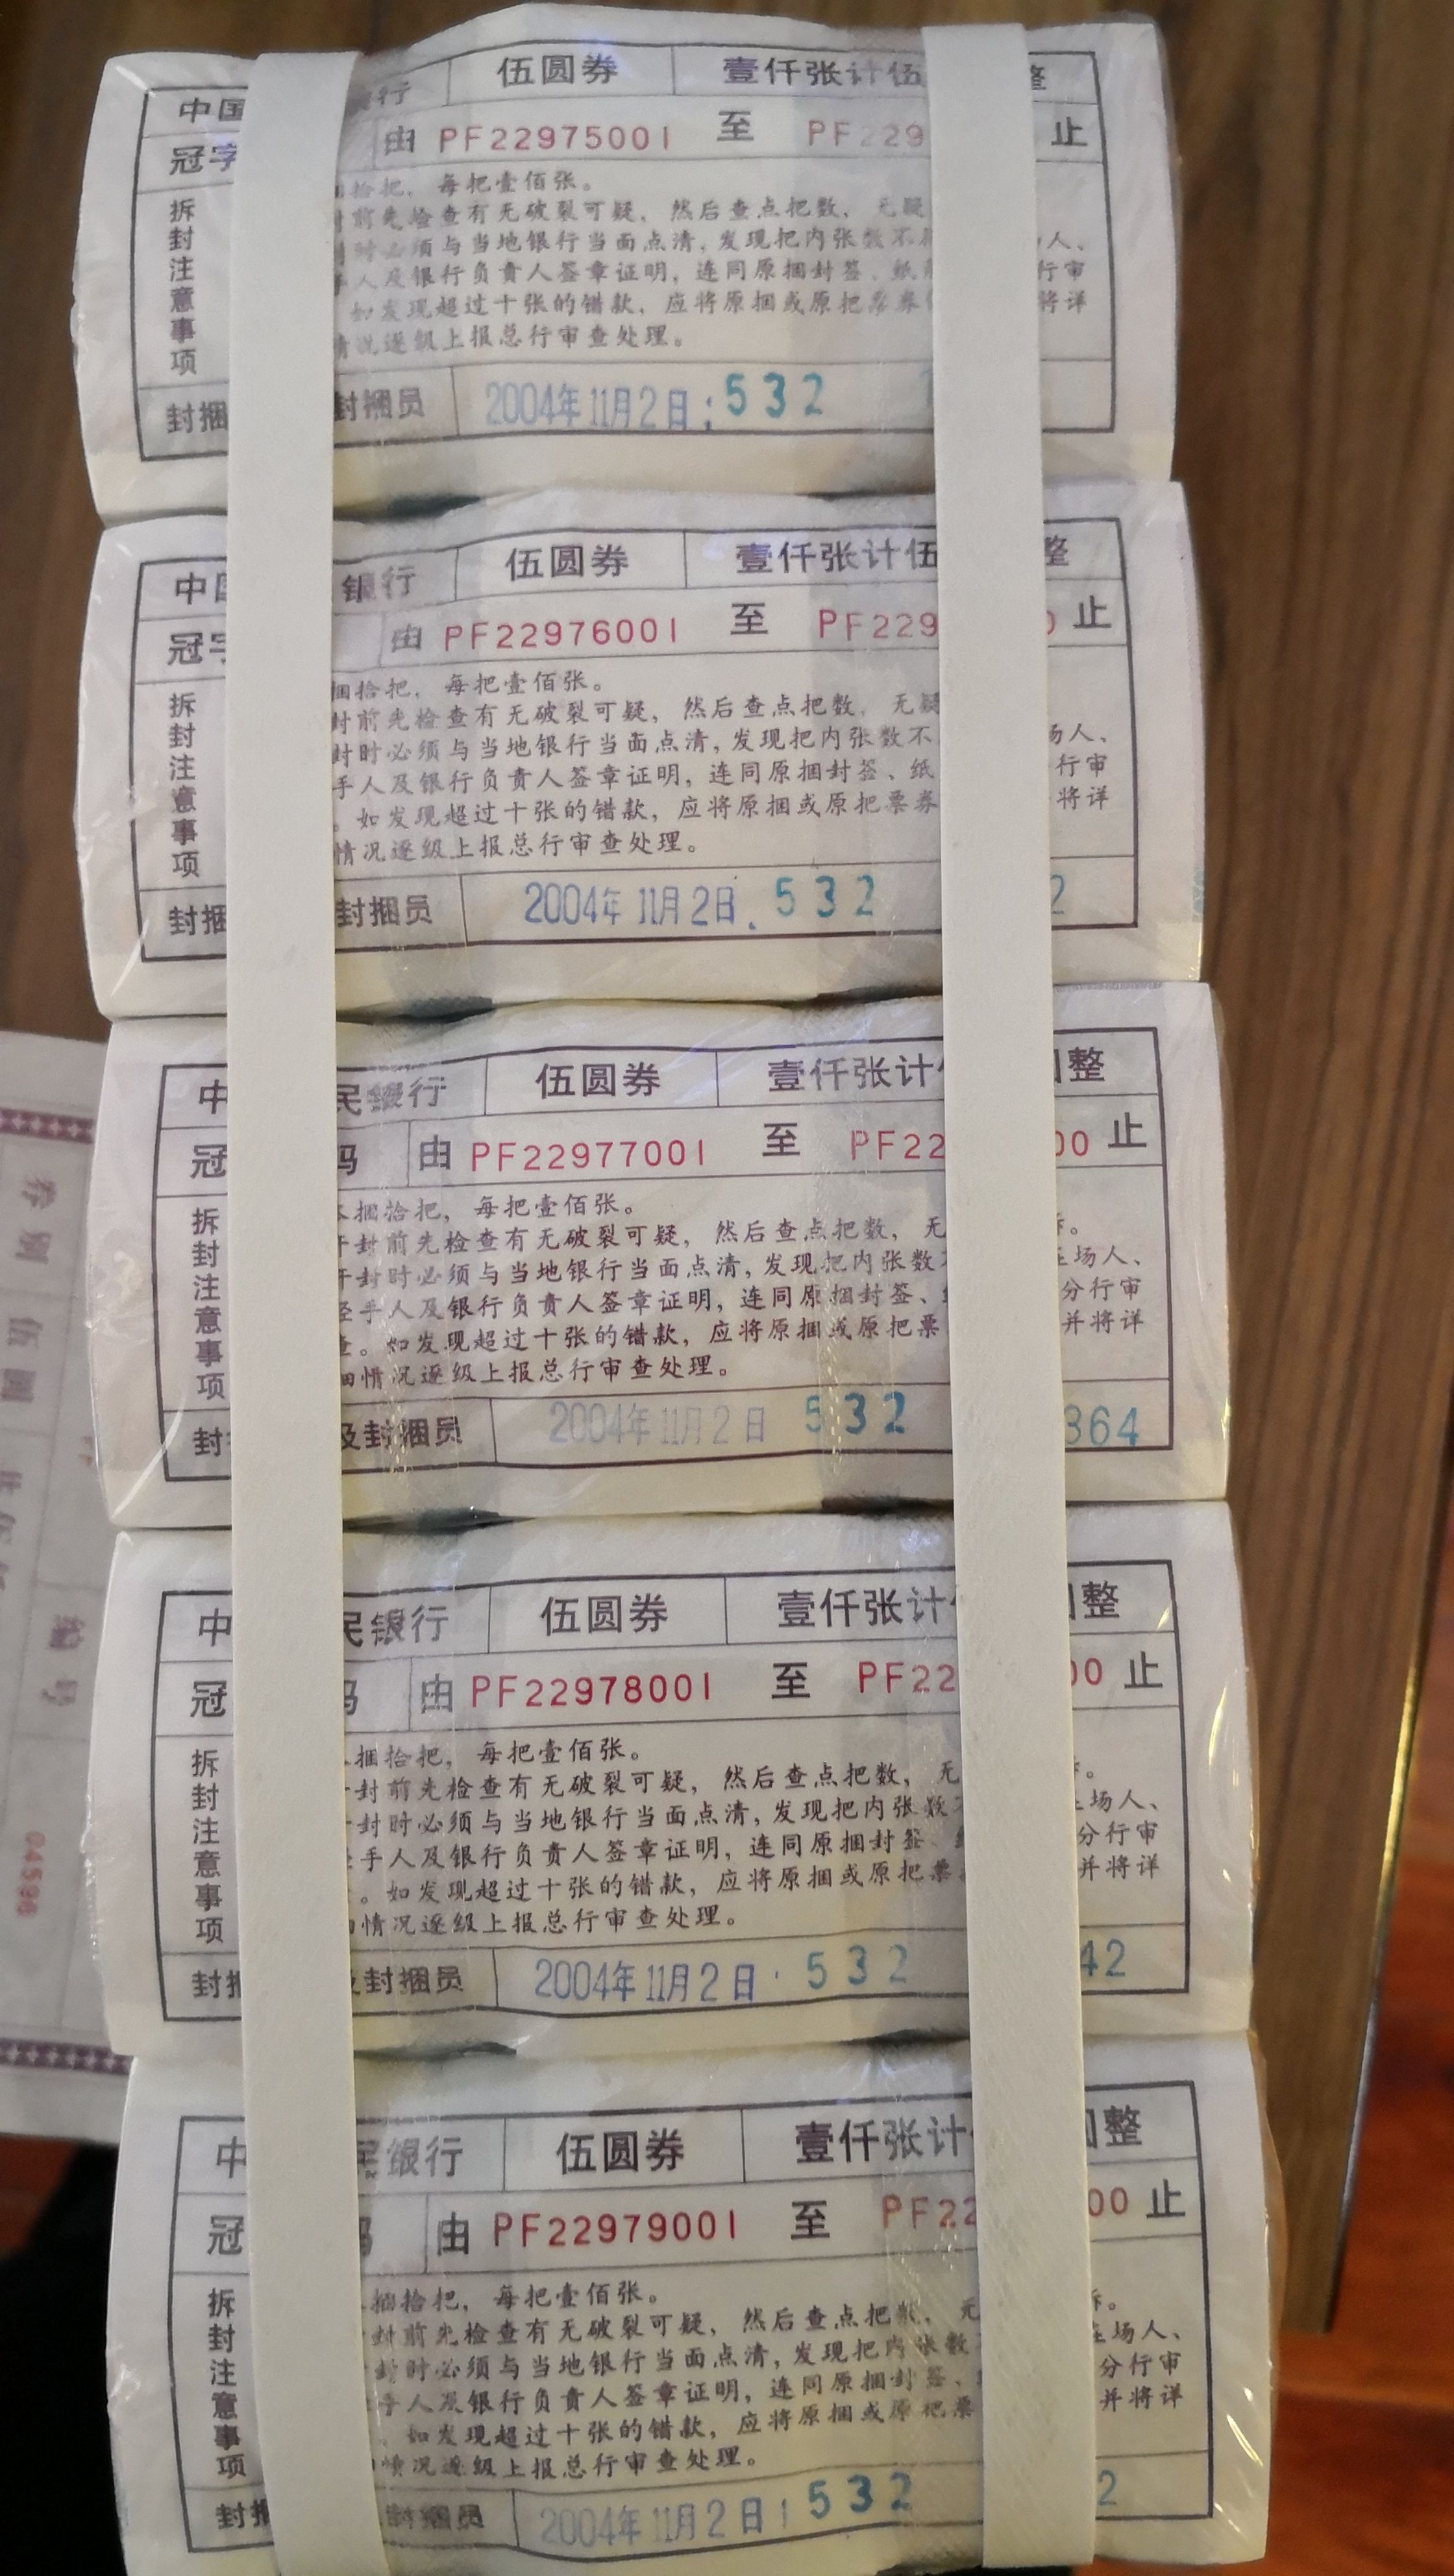 中国 行 伍圆券 壹仟张计伍 整
冠字 由 PF22975001 至 PF229 止
拆封注意事项
拾把，每把壹佰张。
前先检查有无破裂可疑，然后查点把数，无疑
时必须与当地银行当面点清，发现把内张数不 人、
人及银行负责人签章证明，连同原捆封签、纸 行审
如发现超过十张的错款，应将原捆或原把票券 将详
情况逐级上报总行审查处理。
封捆 封捆员 2004年11月2日 532
中国 银行 伍圆券 壹仟张计伍 整
冠字 由 PF22976001 至 PF229 0 止
拆封注意事项
捆拾把，每把壹佰张。
封前先检查有无破裂可疑，然后查点把数，无疑
封时必须与当地银行当面点清，发现把内张数不 场人、
手人及银行负责人签章证明，连同原捆封签、纸 行审
。如发现超过十张的错款，应将原捆或原把票券 将详
情况逐级上报总行审查处理。
封捆 封捆员 2004年11月2日 532 2
中 民银行 伍圆券 壹仟张计 整
冠 码 由 PF22977001 至 PF22 00 止
拆封注意事项
捆拾把，每把壹佰张。
封前先检查有无破裂可疑，然后查点把数，无 。
封时必须与当地银行当面点清，发现把内张数 场人、
手人及银行负责人签章证明，连同原捆封签、 分行审
。如发现超过十张的错款，应将原捆或原把票 并将详
细情况逐级上报总行审查处理。
封 及封捆员 2004年11月2日 532 364
中 民银行 伍圆券 壹仟张计 整
冠 码 由 PF22978001 至 PF22 00 止
拆封注意事项
捆拾把，每把壹佰张。
封前先检查有无破裂可疑，然后查点把数，无 。
封时必须与当地银行当面点清，发现把内张数 场人、
手人及银行负责人签章证明，连同原捆封签、 分行审
。如发现超过十张的错款，应将原捆或原把票 并将详
情况逐级上报总行审查处理。
封捆 及封捆员 2004年11月2日 532 42
中 民银行 伍圆券 壹仟张计 整
冠 码 由 PF22979001 至 PF22 00 止
拆封注意事项
捆拾把，每把壹佰张。
封前先检查有无破裂可疑，然后查点把数，无 。
封时必须与当地银行当面点清，发现把内张数 场人、
手人及银行负责人签章证明，连同原捆封签、 分行审
如发现超过十张的错款，应将原捆或原把票 并将详
情况逐级上报总行审查处理。
封捆 封捆员 2004年11月2日 532 2
券别 伍圆
编号